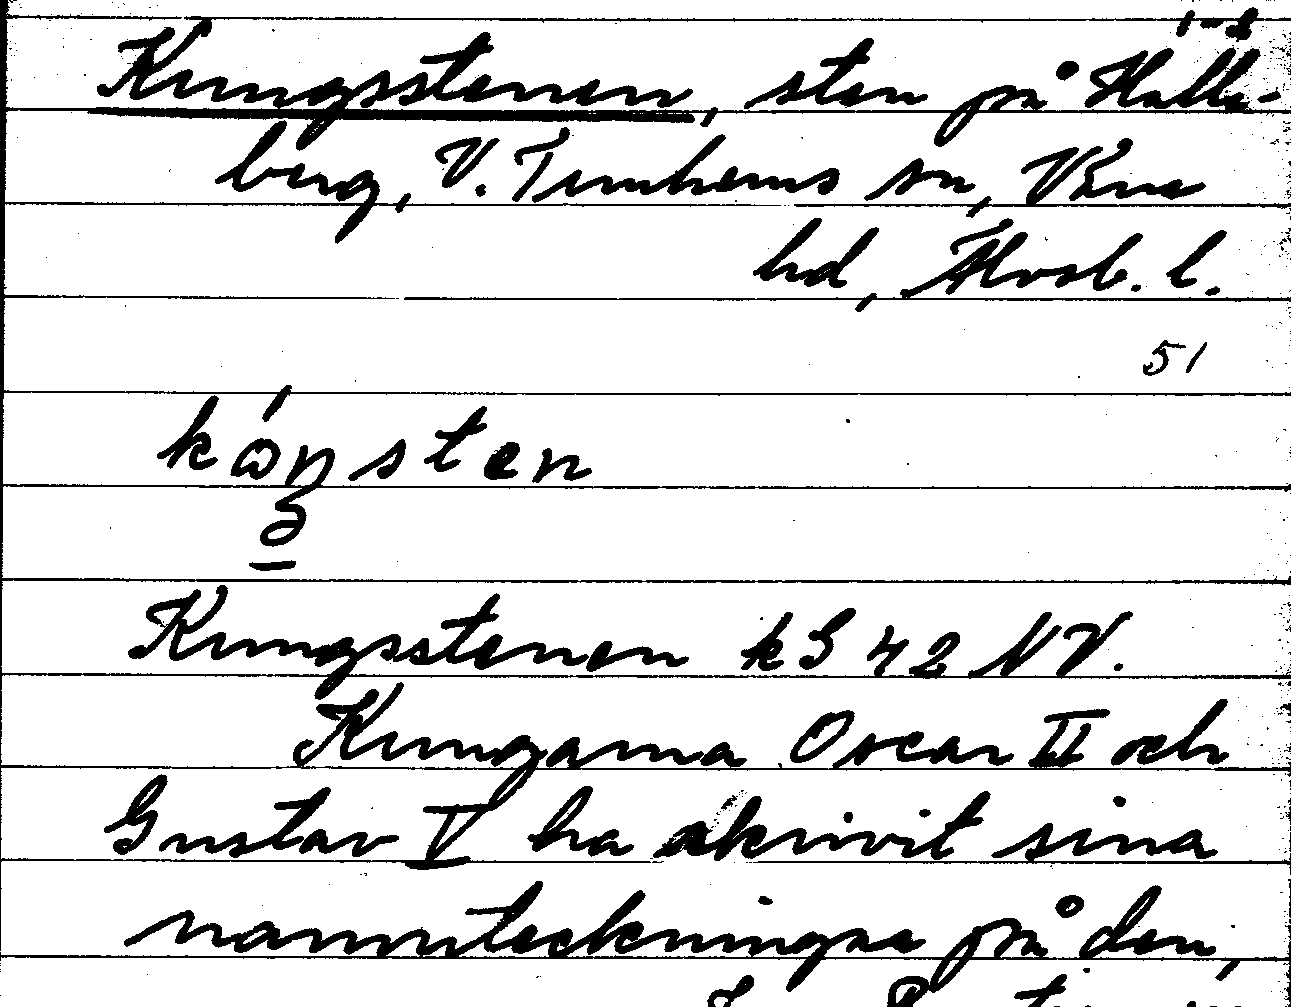 1-2
Kungsstenen, sten på Halle-
berg, V. Tunhems sn, Väne
hd, Älvsb. l.
51
kóŋsten
Kungsstenen kG 42 NV.
Kungarna Oscar II och
Gustav V ha skrivit sina
namnteckningar på den,